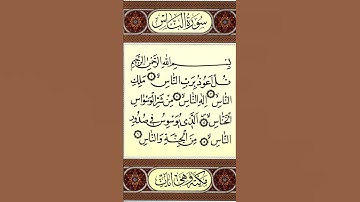 سورة الناس
بسم الله الرحمن الرحيم
قل أعوذ برب الناس ۝ ملك
الناس ۝ إله الناس ۝ من شر الوسواس
الخناس ۝ الذي يوسوس في صدور
الناس ۝ من الجنة والناس ۝
مكية وهي آيات